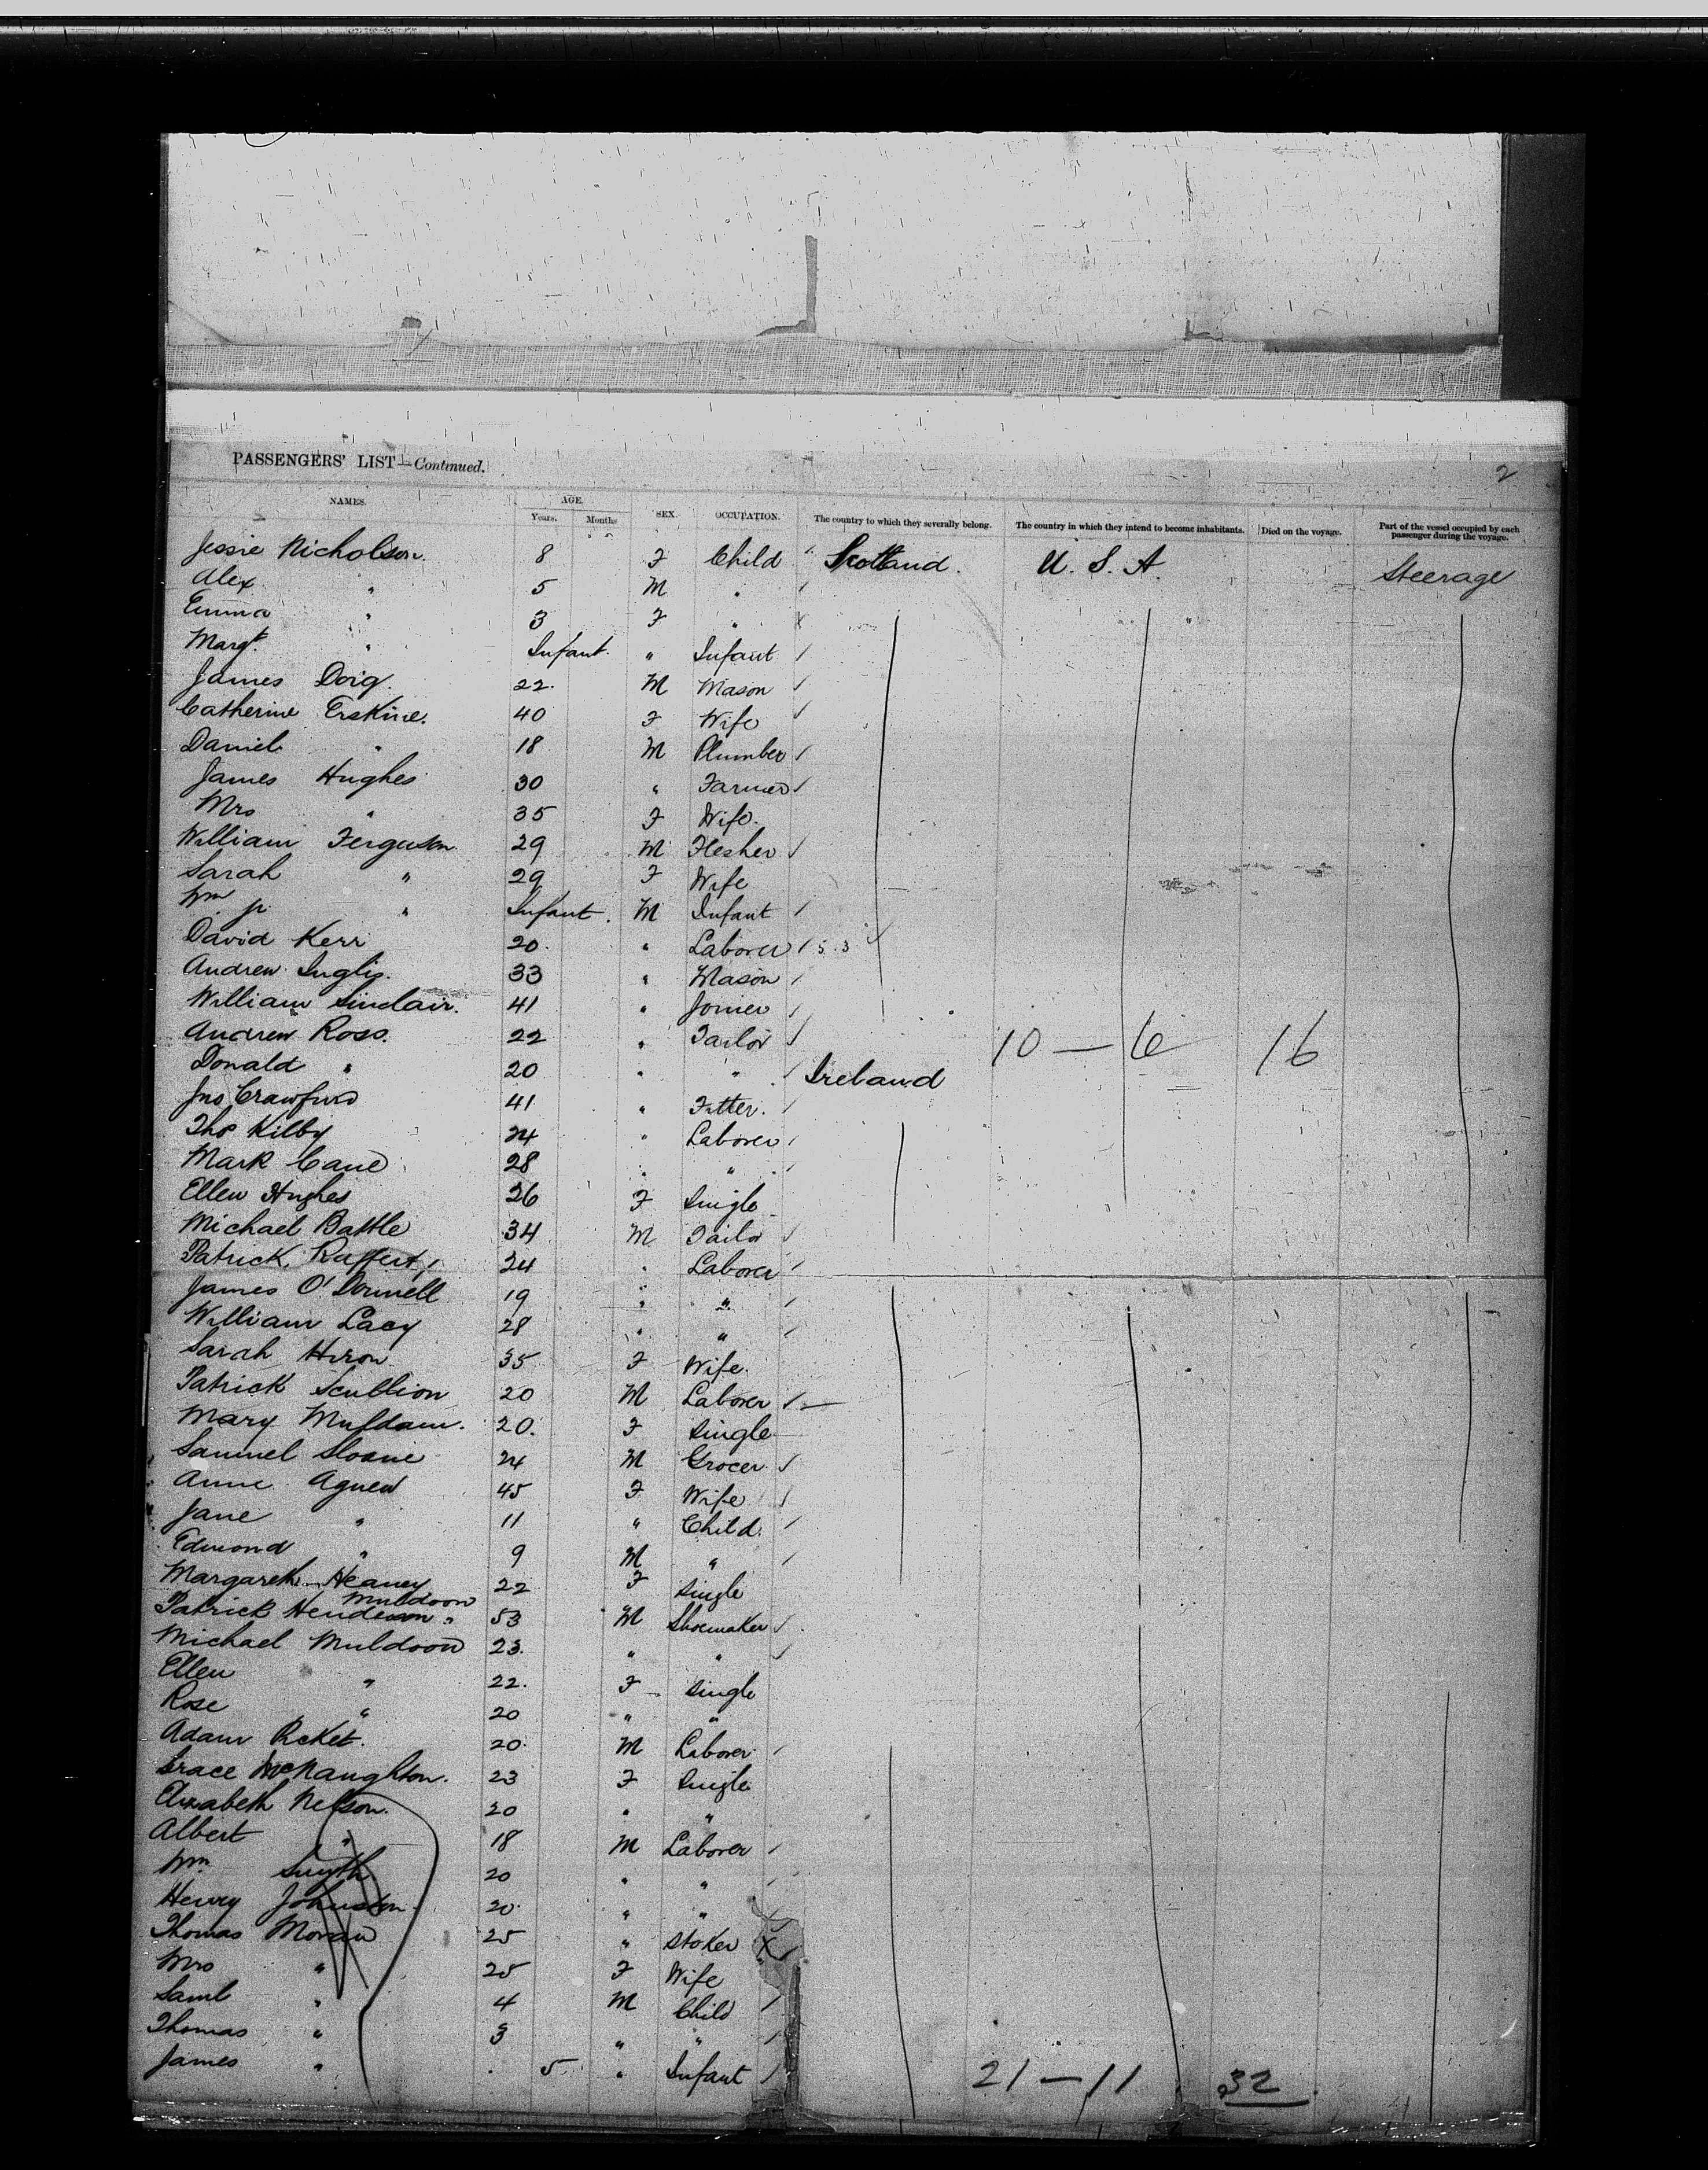 PASSENGERS' LIST—Continued.
2
NAMES. AGE. SEX. OCCUPATION. The country to which they severally belong. The country in which they intend to become inhabitants. Died on the voyage. Part of the vessel occupied by each passenger during the voyage.
Years. Months
Jessie Nicholson. 8 F Child Scotland. U. S. A. Steerage
Alex " 5 M "
Emma " 3 F "
Margt. " Infant. " Infant
James Doig. 22. M Mason
Catherine Erskine. 40 F Wife
Daniel " 18 M Plumber
James Hughes 30 " Farmer
Mrs " 35 F Wife.
William Ferguson 29 M Flesher
Sarah " 29 F Wife
Wm jr. " Infant. M Infant
David Kerr 20. " Laborer 5.3
Andrew Inglis. 33 " Mason
William Sinclair. 41 " Joiner
Andrew Ross. 22 " Tailor 10 — 6 16
Donald " 20 " " Ireland
Jno Crawford 41 " Fitter.
Tho Kilby 24 " Laborer
Mark Cane 28 " "
Ellen Hughes 26 F Single
Michael Battle 34 M Tailor
Patrick Raffert 24 " Laborer
James O'Donnell 19 " "
William Lacy 28 " "
Sarah Heron 35 F Wife.
Patrick Scullion 20 M Laborer
Mary 20. F Single
Samuel Sloane 24 M Grocer
Anne Agnew 45 F Wife
Jane " 11 " Child.
Edmond " 9 M "
Margareth Heaney 22 F Single
Muldoon
Patrick Henderson " 53 M Shoemaker
Michael Muldoon 23. " "
Ellen " 22. F Single
Rose " 20 " "
Adam 20. M Laborer
Grace McNaughton. 23 F Single
Elizabeth Nelson. 20 " "
Albert " 18 M Laborer
Wm. Smyth 20 " "
Henry Johnston. 20. " "
Thomas Moran 25 " Stoker X
Mrs " 25 F Wife
Saml " 4 M Child
Thomas " 3 " "
James " 5 " Infant
21 — 11 32